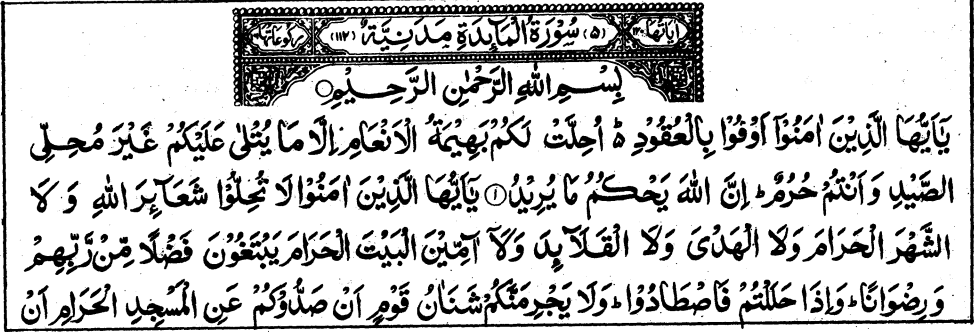 اٰيَاتُهَا ١٢٠ (٥) سُوْرَةُ الْمَآئِدَةِ مَدَنِيَّةٌ (١١٢) رُكُوْعَاتُهَا
بِسْمِ اللّٰهِ الرَّحْمٰنِ الرَّحِيْمِ ○
يٰٓاَيُّهَا الَّذِيْنَ اٰمَنُوْٓا اَوْفُوْا بِالْعُقُوْدِ ؕ اُحِلَّتْ لَكُمْ بَهِيْمَةُ الْاَنْعَامِ اِلَّا مَا يُتْلٰى عَلَيْكُمْ غَيْرَ مُحِلِّى
الصَّيْدِ وَاَنْتُمْ حُرُمٌ ؕ اِنَّ اللّٰهَ يَحْكُمُ مَا يُرِيْدُ ① يٰٓاَيُّهَا الَّذِيْنَ اٰمَنُوْا لَا تُحِلُّوْا شَعَآئِرَ اللّٰهِ وَلَا
الشَّهْرَ الْحَرَامَ وَلَا الْهَدْىَ وَلَا الْقَلَآئِدَ وَلَآ آٰمِّيْنَ الْبَيْتَ الْحَرَامَ يَبْتَغُوْنَ فَضْلًا مِّنْ رَّبِّهِمْ
وَرِضْوَانًا ؕ وَاِذَا حَلَلْتُمْ فَاصْطَادُوْا ؕ وَلَا يَجْرِمَنَّكُمْ شَنَاٰنُ قَوْمٍ اَنْ صَدُّوْكُمْ عَنِ الْمَسْجِدِ الْحَرَامِ اَنْ